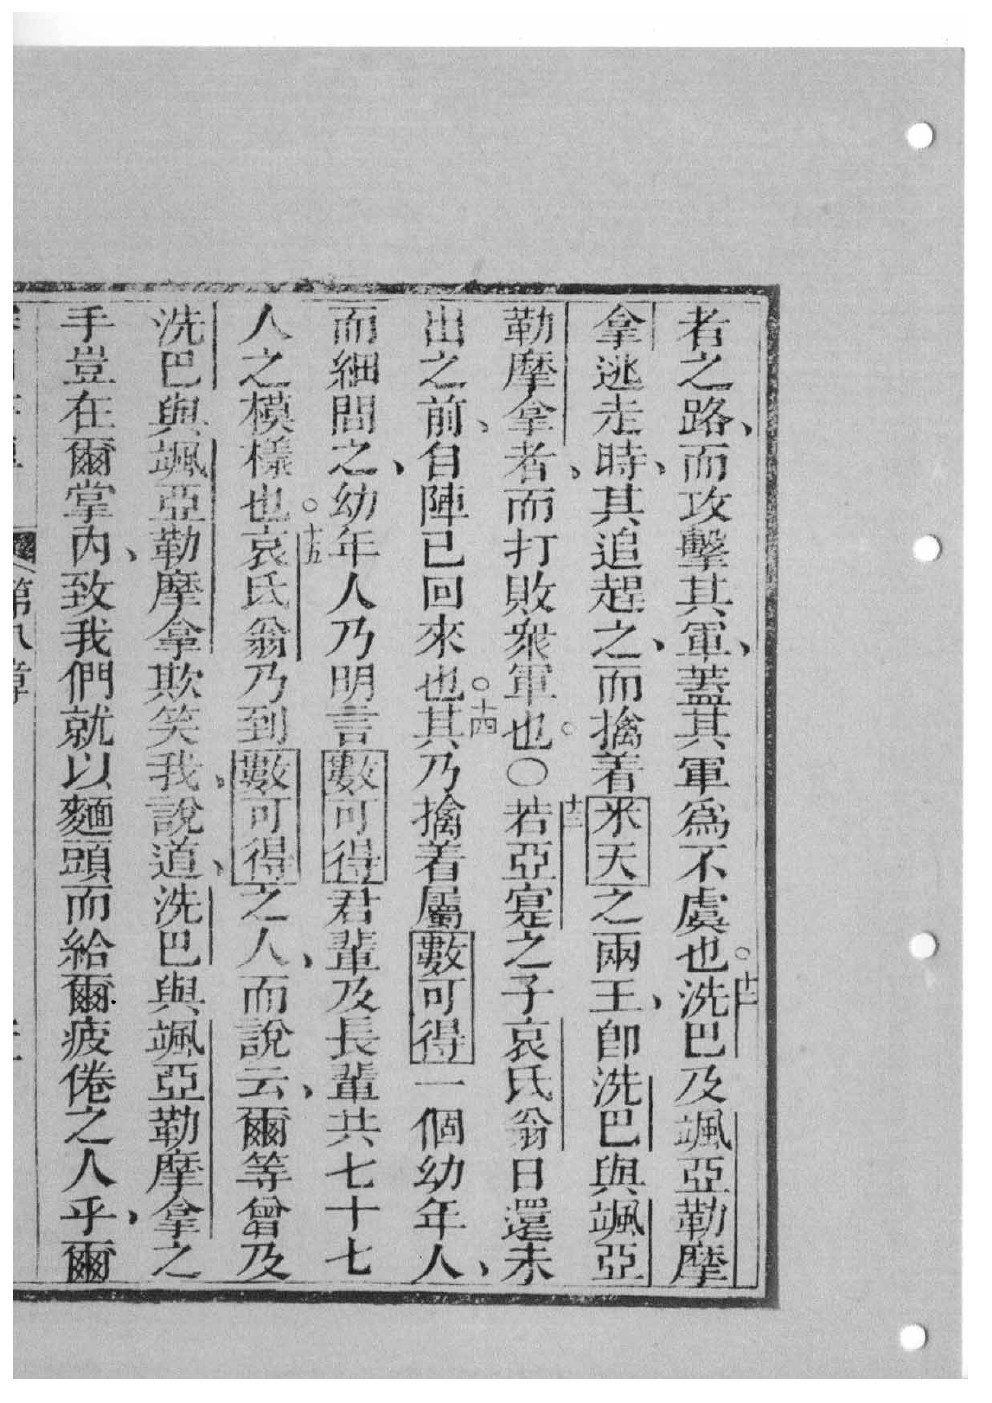 者之路、而攻擊其軍、蓋其軍爲不虞也。十二洗巴及颯亞勒摩
拿逃走時、其追趕之、而擒着米天之兩王、卽洗巴與颯亞
勒摩拿者、而打敗衆軍也。〇十三若亞寔之子哀氏翁日還未
出之前、自陣已回來也。十四其乃擒着屬數可得一個幼年人、
而細問之、幼年人乃明言數可得君輩及長輩共七十七
人之模樣也。十五哀氏翁乃到數可得之人、而說云、爾等曾及
洗巴與颯亞勒摩拿欺笑我、說道、洗巴與颯亞勒摩拿之
手豈在爾掌內、致我們就以麵頭而給爾疲倦之人乎、爾
第八章